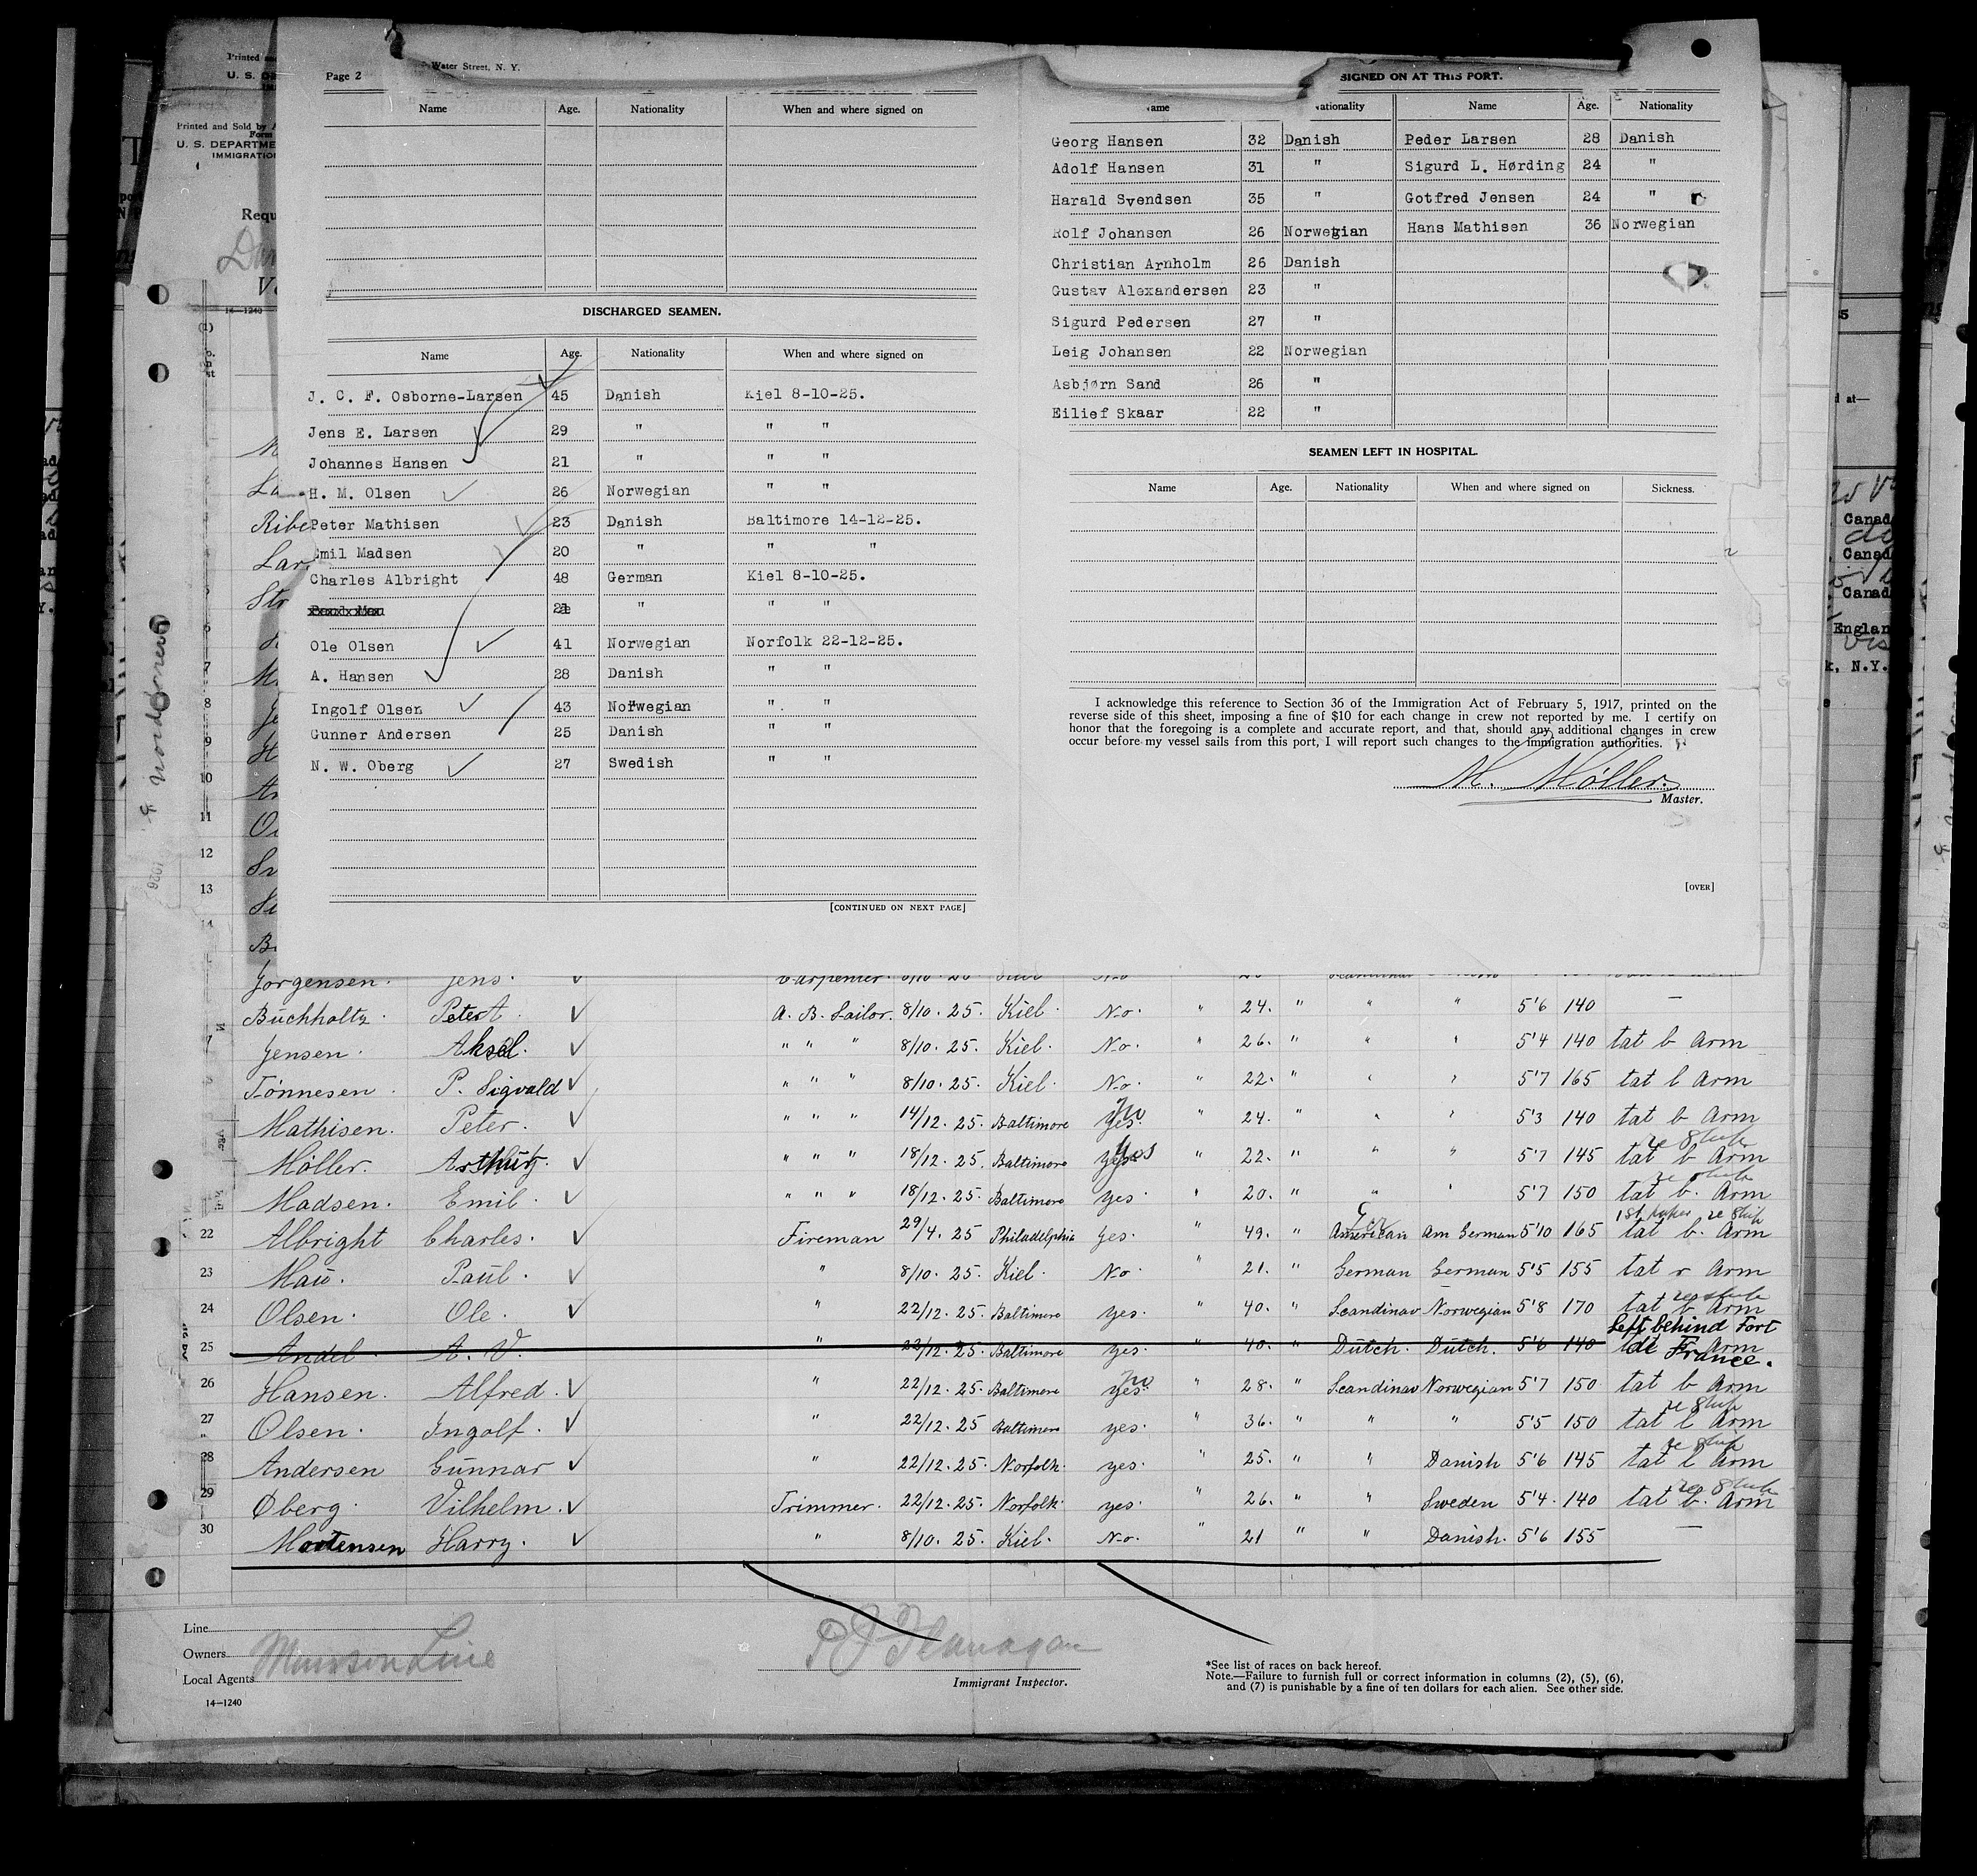 Page 2
Water Street, N. Y.
Name Age. Nationality When and where signed on
DISCHARGED SEAMEN.
Name Age. Nationality When and where signed on
J. C. F. Osborne-Larsen 45 Danish Kiel 8-10-25.
Jens E. Larsen 29 " " "
Johannes Hansen 21 " " "
H. M. Olsen 26 Norwegian " "
Peter Mathisen 23 Danish Baltimore 14-12-25.
Emil Madsen 20 " " "
Charles Albright 48 German Kiel 8-10-25.
21 " " "
Ole Olsen 41 Norwegian Norfolk 22-12-25.
A. Hansen 28 Danish " "
Ingolf Olsen 43 Norwegian " "
Gunner Andersen 25 Danish " "
N. W. Oberg 27 Swedish " "
[CONTINUED ON NEXT PAGE]
SIGNED ON AT THIS PORT.
ame ationality Name Age. Nationality
Georg Hansen 32 Danish Peder Larsen 28 Danish
Adolf Hansen 31 " Sigurd L. Hørding 24 "
Harald Svendsen 35 " Gotfred Jensen 24 "
Rolf Johansen 26 Norwegian Hans Mathisen 36 Norwegian
Christian Arnholm 26 Danish
Gustav Alexandersen 23 "
Sigurd Pedersen 27 "
Leig Johansen 22 Norwegian
Asbjørn Sand 26 "
Eilief Skaar 22 "
SEAMEN LEFT IN HOSPITAL.
Name Age. Nationality When and where signed on Sickness.
I acknowledge this reference to Section 36 of the Immigration Act of February 5, 1917, printed on the
reverse side of this sheet, imposing a fine of $10 for each change in crew not reported by me. I certify on
honor that the foregoing is a complete and accurate report, and that, should any additional changes in crew
occur before my vessel sails from this port, I will report such changes to the immigration authorities.
M. Möller.
Master.
[OVER]
Printed and Sold by
U. S. DEPARTME
IMMIGRATION
Requ
14-1240
8
9
10
11
12
13
14
Jorgensen. Jens. Carpenter.
Büchholtz. Peter A. A. B. Sailor. 8/10. 25. Kiel. No. " 24. " " " 5'6 140 —
Jensen. Aksel. " " " 8/10. 25. Kiel. No. " 26. " " " 5'4 140 tat b arm
Tönnesen. P. Sigvald " " " 8/10. 25. Kiel. No. " 22. " " " 5'7 165 tat l arm
Mathisen. Peter. " " " 14/12. 25. Baltimore yes. no " 24. " " " 5'3 140 tat b arm
Möller. Arthur. " " " 18/12. 25. Baltimore yes " 22. " " " 5'7 145 tat b arm re ship
Madsen. Emil. " " " 18/12. 25. Baltimore yes. " 20. " " " 5'7 150 tat b. arm re ship
22 Albright Charles. Fireman 29/4. 25 Philadelphia yes. " 49. " American Am German 5'10 165 tat b. arm re ship
23 Maü. Paül. " 8/10. 25. Kiel. No. " 21. " German German 5'5 155 tat r arm
24 Olsen. Ole. " 22/12. 25. Baltimore yes. " 40. " Scandinav Norwegian 5'8 170 tat b arm re ship
25 Andel. A. V. " 22/12. 25. Baltimore yes. " 40. " Dütch. Dütch. 5'6 140 arm Left behind Fort de France.
26 Hansen. Alfred. " 22/12. 25. Baltimore yes. no " 28. " Scandinav Norwegian 5'7 150 tat b arm
27 Olsen. Ingolf. " 22/12. 25 Baltimore yes. " 36. " " " 5'5 150 tat l arm re ship
28 Andersen Günnar " 22/12. 25. Norfolk. yes. " 25. " " Danish 5'6 145 tat l arm re ship
29 Øberg. Vilhelm. Trimmer. 22/12. 25. Norfolk. yes. " 26. " " Sweden 5'4. 140 tat b. arm re ship
30 Mortensen Harry. " 8/10. 25. Kiel. No. " 21 " " Danish. 5'6 155 —
Line
Owners Munson Line
Local Agents
14—1240
P J Flanagan
Immigrant Inspector.
*See list of races on back hereof.
Note.—Failure to furnish full or correct information in columns (2), (5), (6),
and (7) is punishable by a fine of ten dollars for each alien. See other side.
Canad
Canad
Canad
Englan
k, N.Y.